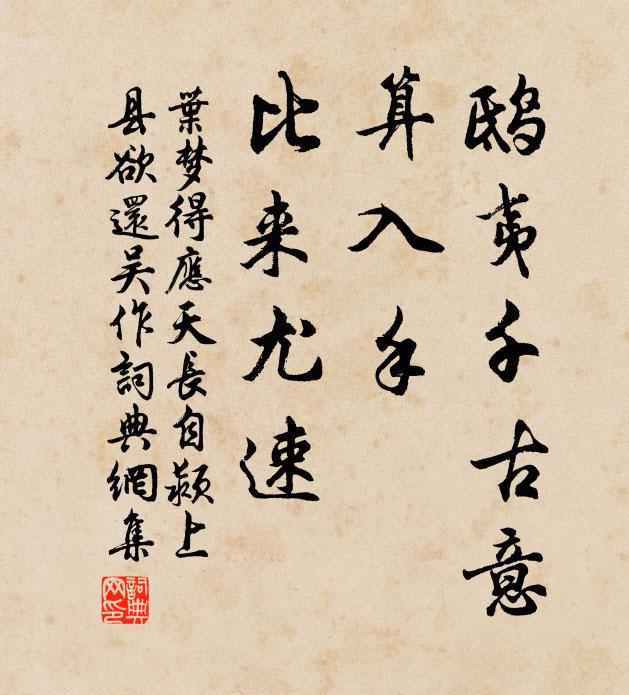 鸱夷千古意
算入手
比来尤速
葉梦得應天長自颍上
县欲還吴作詞典網集
詞典
网印